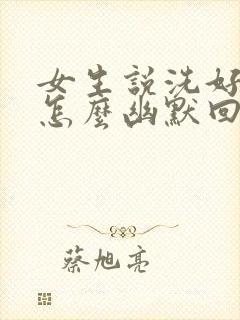 女生說洗好
怎麼幽默回
蔡旭亮